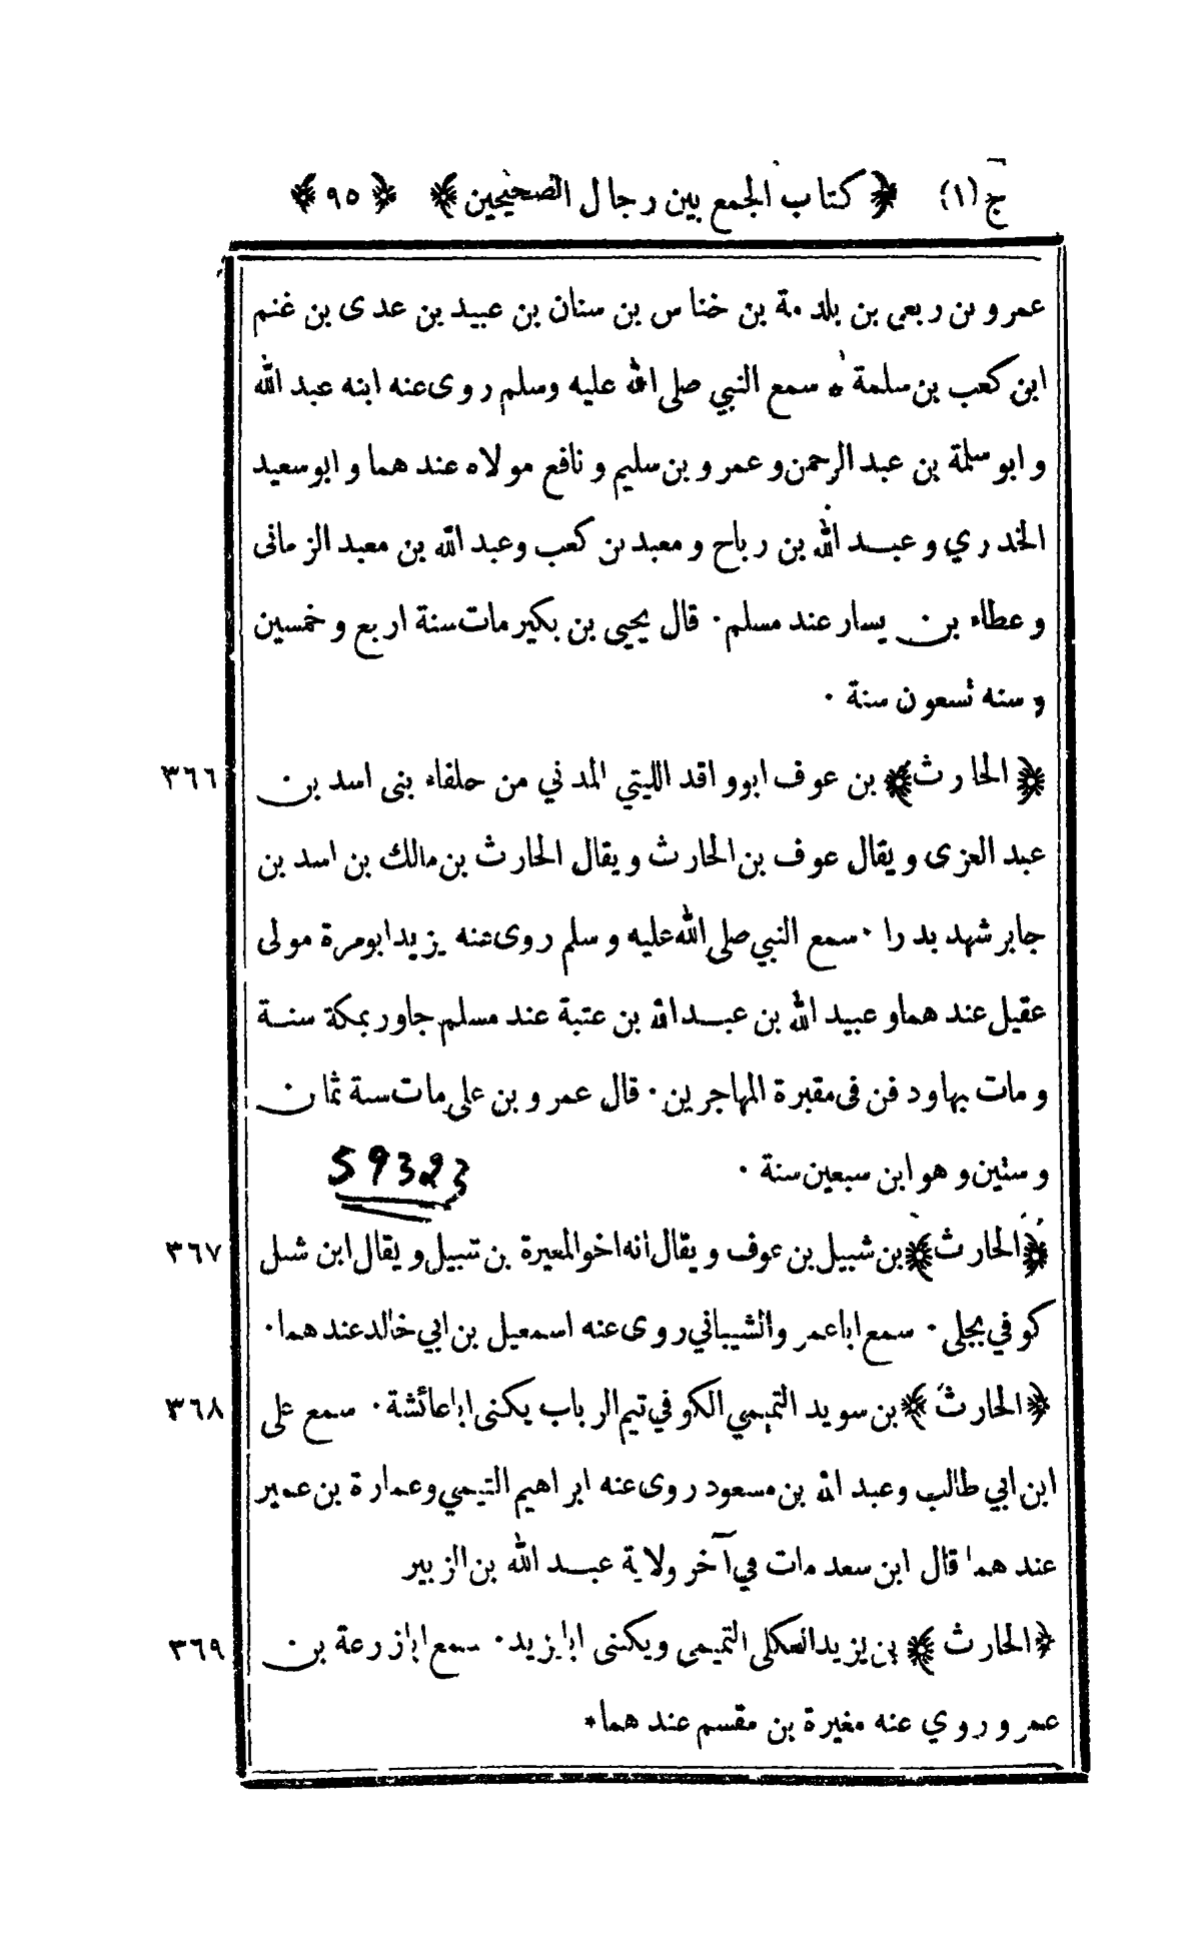 ج (١) ﴿ كتاب الجمع بين رجال الصحيحين ﴾ ﴿ ٩٥ ﴾
عمرو بن ربعي بن بلدمة بن خناس بن سنان بن عبيد بن عدى بن غنم
ابن كعب بن سلمة * سمع النبي صلى الله عليه وسلم روى عنه ابنه عبد الله
وابو سلمة بن عبد الرحمن وعمرو بن سليم ونافع مولاه عندهما وابو سعيد
الخدري وعبد الله بن رباح ومعبد بن كعب وعبد الله بن معبد الزمانى
وعطاء بن يسار عند مسلم . قال يحيى بن بكير مات سنة اربع وخمسين
وسنه تسعون سنة .
﴿ الحارث ﴾ بن عوف ابو واقد الليثي المدني من حلفاء بنى اسد بن ٣٦٦
عبد العزى ويقال عوف بن الحارث ويقال الحارث بن مالك بن اسد بن
جابر شهد بدرا . سمع النبي صلى الله عليه وسلم روى عنه يزيد ابو مرة مولى
عقيل عندهما وعبيد الله بن عبد الله بن عتبة عند مسلم جاور بمكة سنة
ومات بها ودفن فى مقبرة المهاجرين . قال عمرو بن على مات سنة ثمان
وستين وهو ابن سبعين سنة .
59323
﴿ الحارث ﴾ بن شبيل بن عوف ويقال انه اخو المغيرة بن شبيل ويقال ابن شبل ٣٦٧
كوفي بجلى . سمع ابا عمرو الشيباني روى عنه اسمعيل بن ابي خالد عندهما .
﴿ الحارث ﴾ بن سويد التميمي الكوفي تيم الرباب يكنى ابا عائشة . سمع على ٣٦٨
ابن ابي طالب وعبد الله بن مسعود روى عنه ابراهيم التيمي وعمارة بن عمير
عندهما قال ابن سعد مات في آخر ولاية عبد الله بن الزبير
﴿ الحارث ﴾ بن يزيد العكلى التميمى ويكنى ابا يزيد . سمع ابا زرعة بن ٣٦٩
عمرو روي عنه مغيرة بن مقسم عندهما *